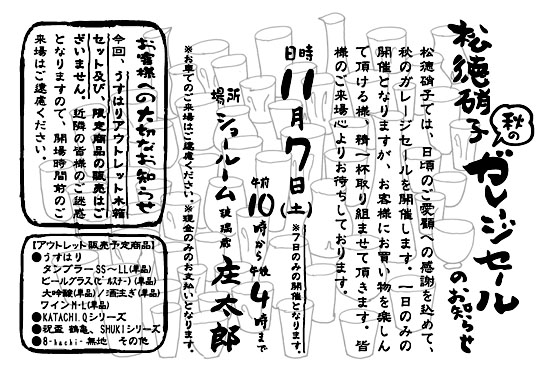 松徳硝子
秋の
ガレージセール
のお知らせ
松徳硝子では、日頃のご愛顧への感謝を込めて、
秋のガレージセールを開催します。一日のみの
開催となりますが、お客様にお買い物を楽しん
で頂ける様、精一杯取り組ませて頂きます。皆
様のご来場心よりお待ちしております。
日時
11月7日(土)
※7日のみの開催となります。
午前10時から午後4時まで
場所
ショールーム
玻璃席
庄太郎
※お車でのご来場はご遠慮ください。※現金のみのお支払いとなります。
お客様への大切なお知らせ
今回、うすはりアウトレット木箱
セット及び、限定商品の販売はご
ざいません。近隣の皆様のご迷惑
となりますので、開場時間前のご
来場はご遠慮ください。
【アウトレット販売予定商品】
●うすはり
タンブラーSS〜LL(単品)
ビールグラス(ピルスナー)(単品)
大吟醸(単品)/酒主ぎ(単品)
ワインM・L(単品)
●KATACHI.Qシリーズ
●祝盃 鶴亀、SHUKIシリーズ
●8-hachi-無地 その他